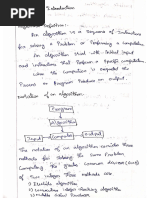 Introduction
Algorithm Definition:-
An algorithm is a sequence of instructions
for solving a Problem or Performing a computation.
An algorithm that will Initial input
and instructions that Perform a specific computation
when the computation is executed the
Process or Program Produce an output.
notation of an algorithm:
Input
Computer
output
The notation of an algorithm consider three
methods for solving the same Problem
Computing the greatest common divisor (GCD)
of two integer. These methods are
1) Euclid's algorithm
2) Consecutive integer checking algorithm
3) Middle School Procedure